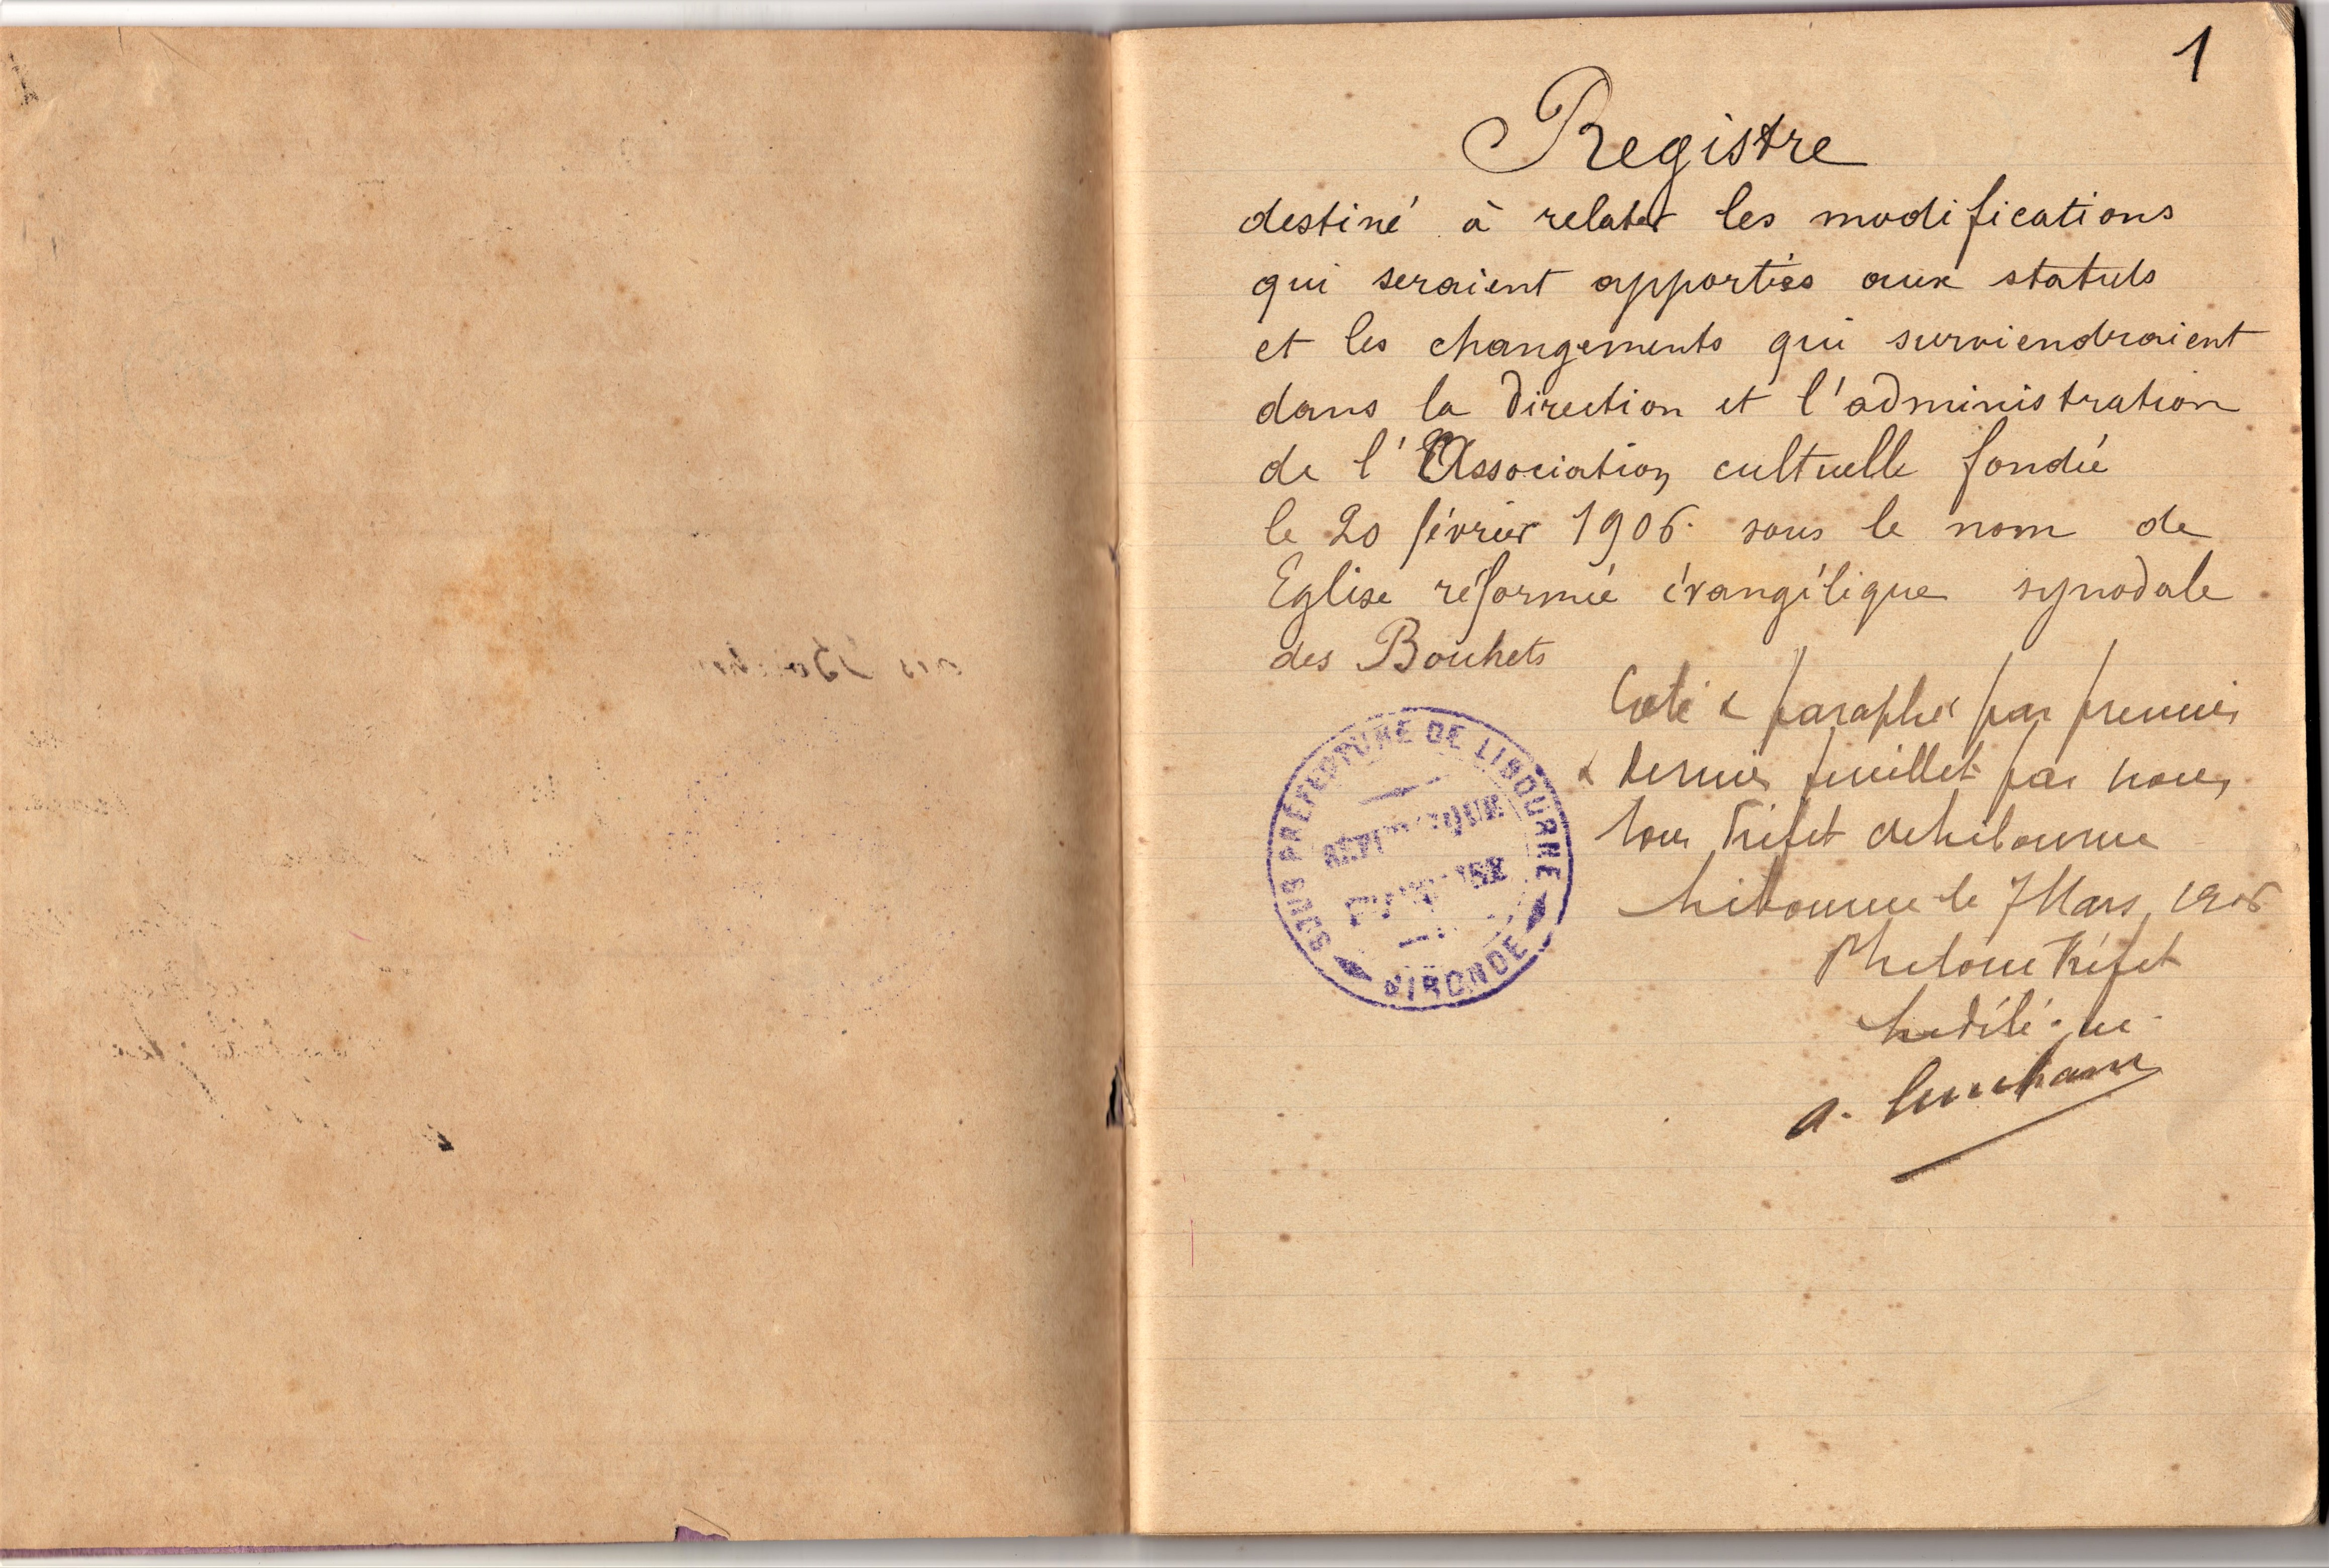 1
Registre
destiné à relater les modifications
qui seraient apportées aux statuts
et les changements qui surviendraient
dans la direction et l'administration
de l'Association cultuelle fondée
le 20 février 1906 sous le nom de
Eglise réformée évangélique synodale
des Bouhets
Coté & paraphé par premier
& dernier feuillet par nous,
Sous Préfet de Libourne
Libourne le 7 Mars 1906
Le Sous Préfet
SOUS PRÉFECTURE DE LIBOURNE
RÉPUBLIQUE
FRANÇAISE
GIRONDE